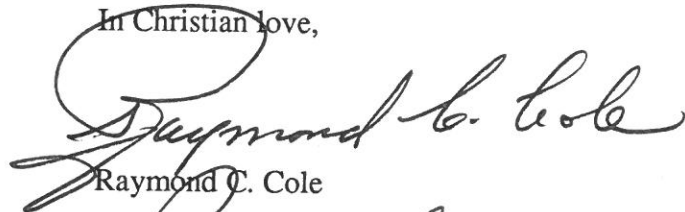 In Christian love,
Raymond C. Cole
Raymond C. Cole